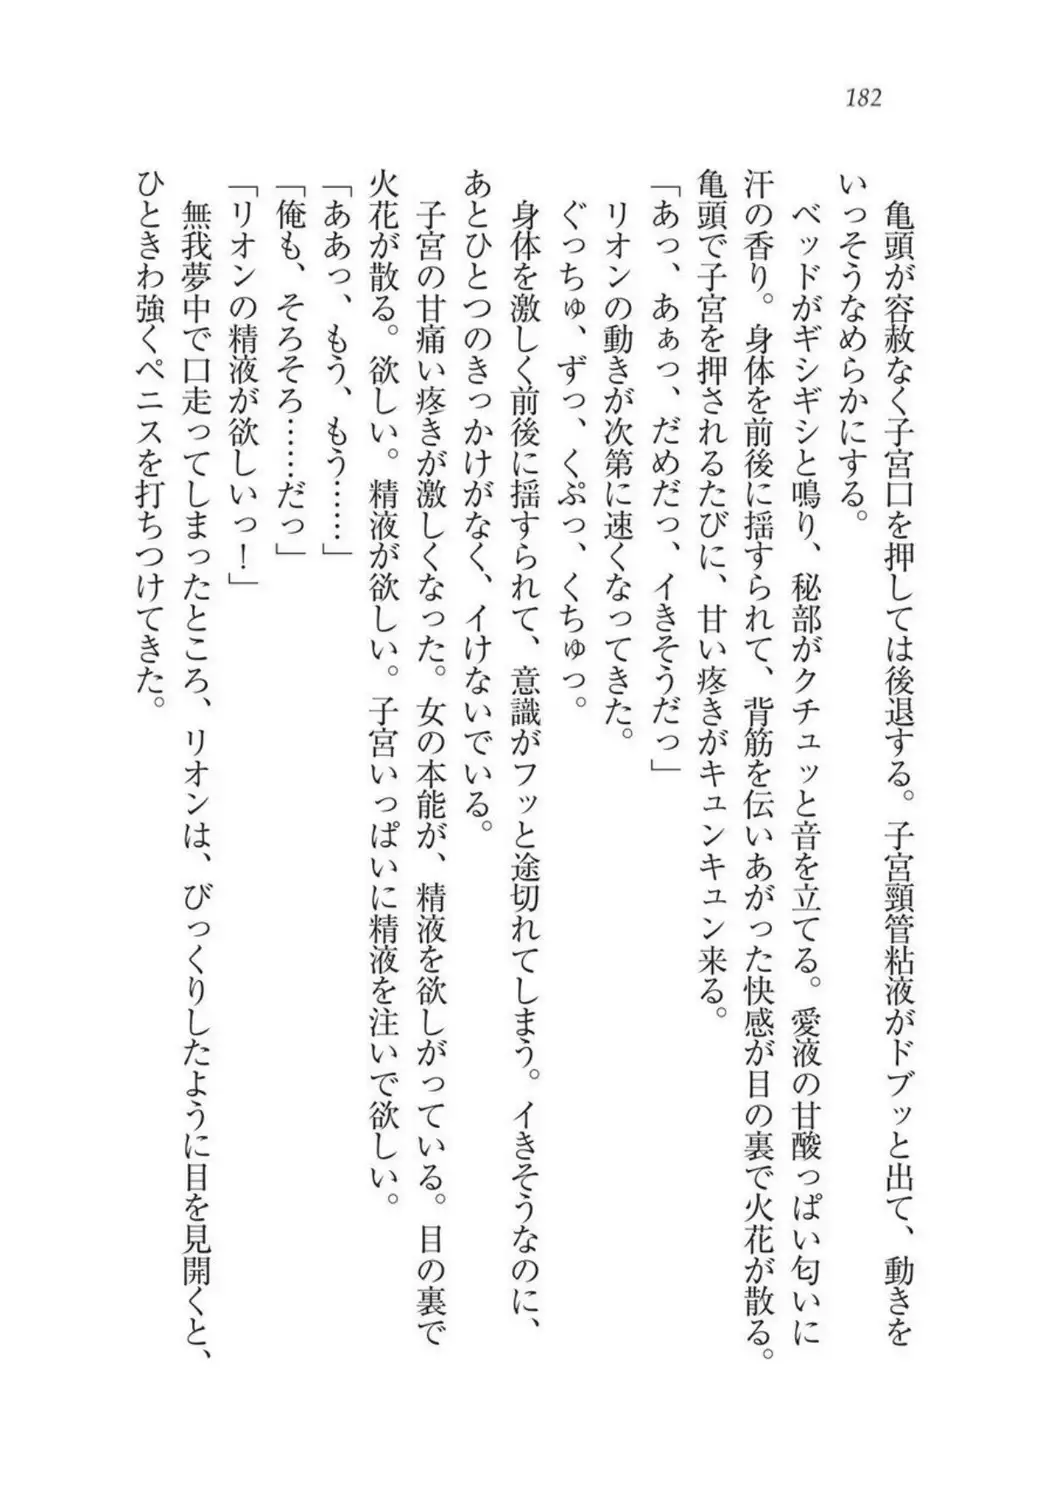 182
　亀頭が容赦なく子宮口を押しては後退する。子宮頸管粘液がドブッと出て、動きを
いっそうなめらかにする。
　ベッドがギシギシと鳴り、秘部がクチュッと音を立てる。愛液の甘酸っぱい匂いに
汗の香り。身体を前後に揺すられて、背筋を伝いあがった快感が目の裏で火花が散る。
亀頭で子宮を押されるたびに、甘い疼きがキュンキュン来る。
「あっ、あぁっ、だめだっ、イきそうだっ」
　リオンの動きが次第に速くなってきた。
　ぐっちゅ、ずっ、くぷっ、くちゅっ。
　身体を激しく前後に揺すられて、意識がフッと途切れてしまう。イきそうなのに、
あとひとつのきっかけがなく、イけないでいる。
　子宮の甘痛い疼きが激しくなった。女の本能が、精液を欲しがっている。目の裏で
火花が散る。欲しい。精液が欲しい。子宮いっぱいに精液を注いで欲しい。
「ああっ、もう、もう……」
「俺も、そろそろ……だっ」
「リオンの精液が欲しいっ！」
　無我夢中で口走ってしまったところ、リオンは、びっくりしたように目を見開くと、
ひときわ強くペニスを打ちつけてきた。